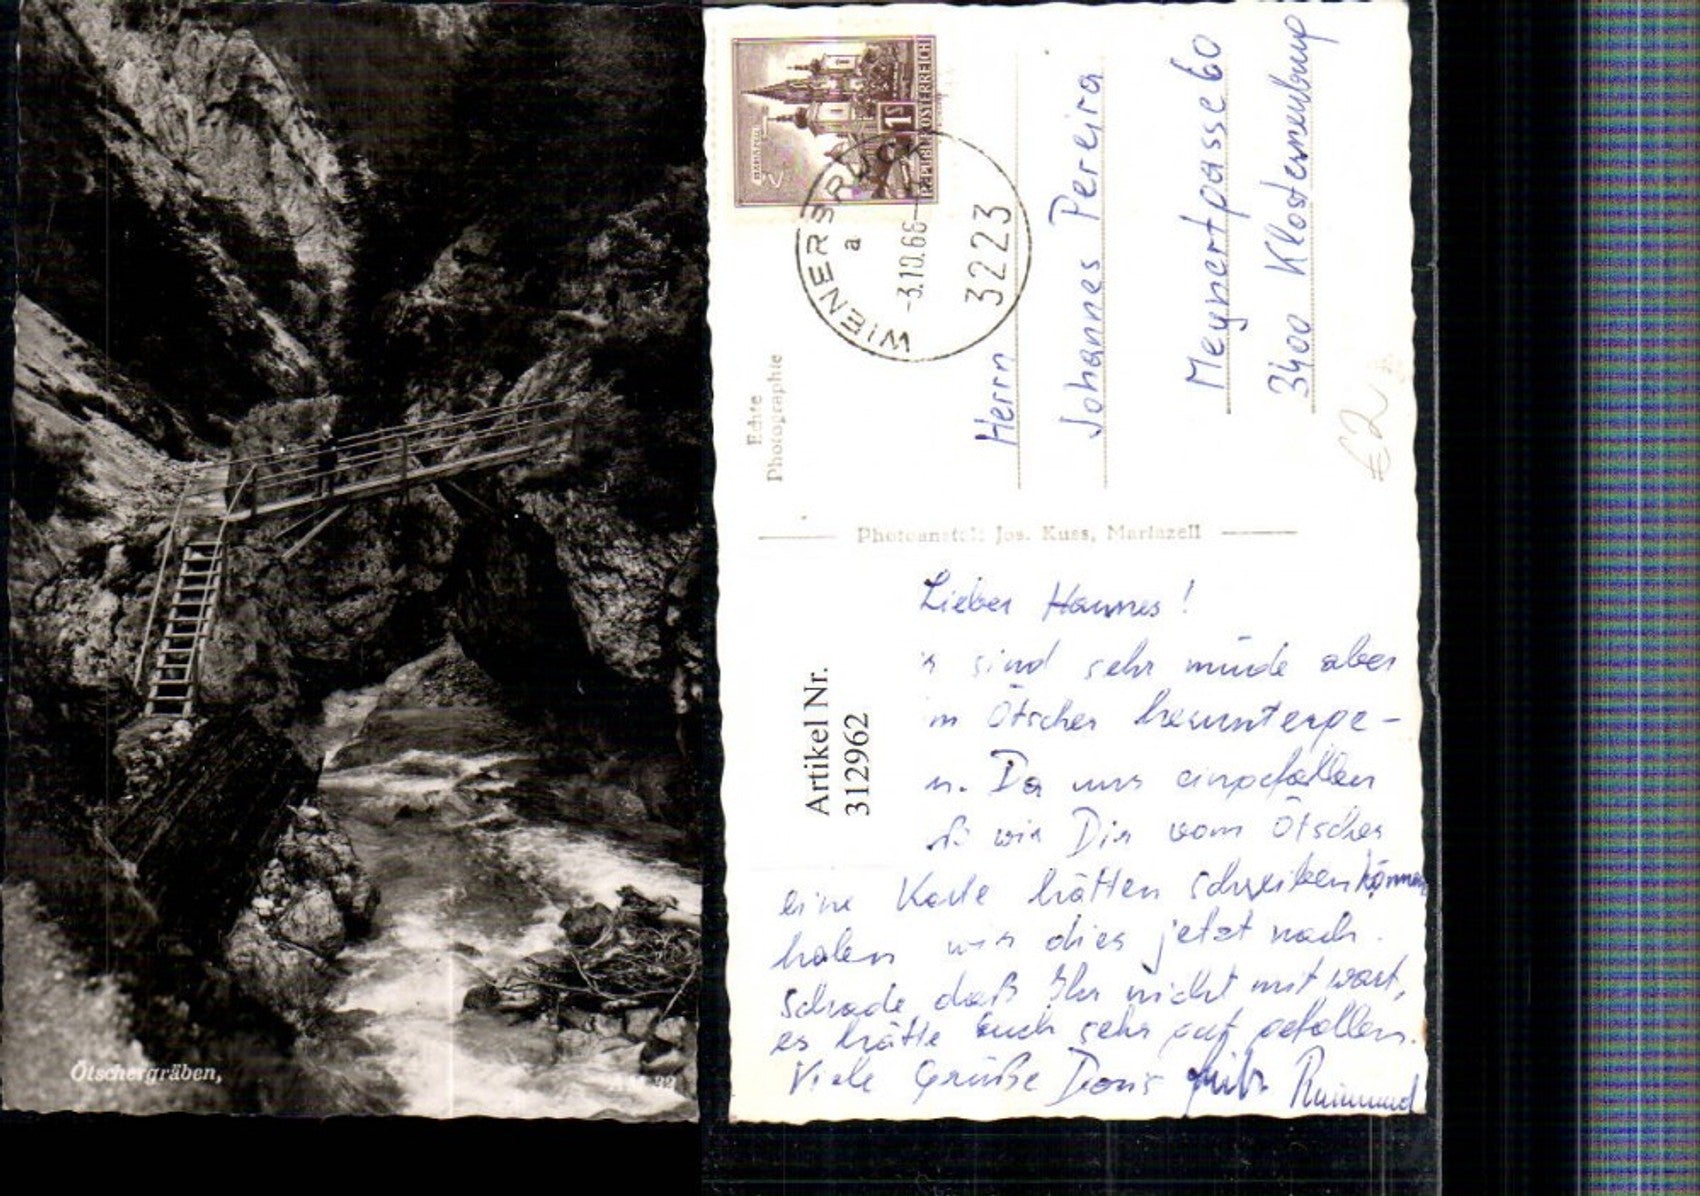 Ötschergräben,
MARIAZELL
1S
REPUBLIK ÖSTERREICH
WIENERBRUCK
a
-3.10.66-
3223
Echte
Photographie
Herrn
Johannes Pereira
Meynertgasse 60
3400 Klosterneuburg
€2
Photoanstalt Jos. Kuss, Mariazell
Artikel Nr.
312962
Lieber Hannes!
sind sehr müde aber
Ötscher herunterge-
n. Da uns eingefallen
wir Dir vom Ötscher
eine Karte hätten schreiben können
holen wir dies jetzt nach.
Schade daß Ihr nicht mit wart,
es hätte Euch sehr gut gefallen.
Viele Grüße Doris Raimund